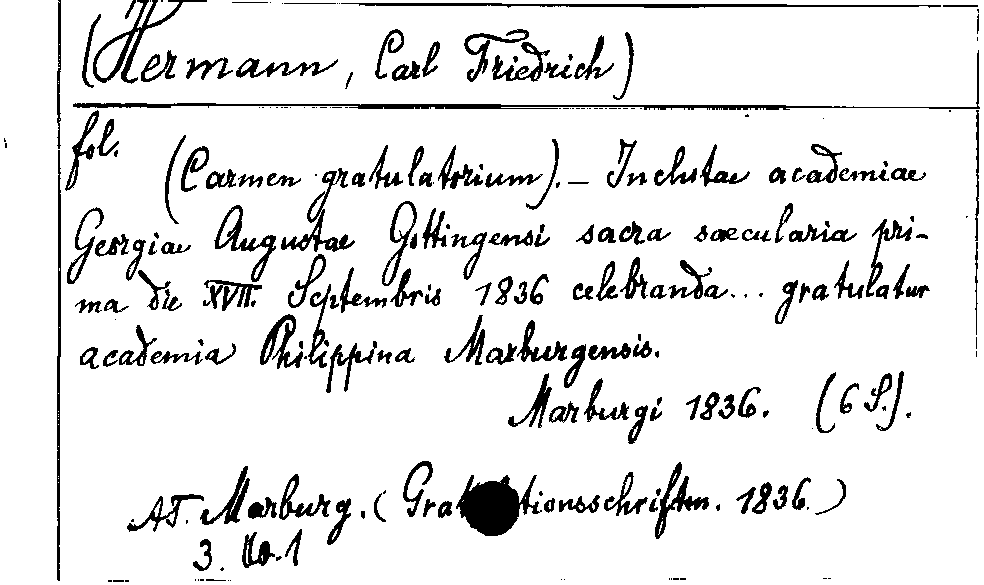 (Hermann, Carl Friedrich)
fol.
(Carmen gratulatorium). — Inclutae academiae
Georgiae Augustae Gottingensi sacra saecularia pri-
ma die XVII. Septembris 1836 celebranda... gratulatur
academia Philippina Marburgensis.
Marburgi 1836. (6 S.).
AT. Marburg. ( 1836.)
3. 1